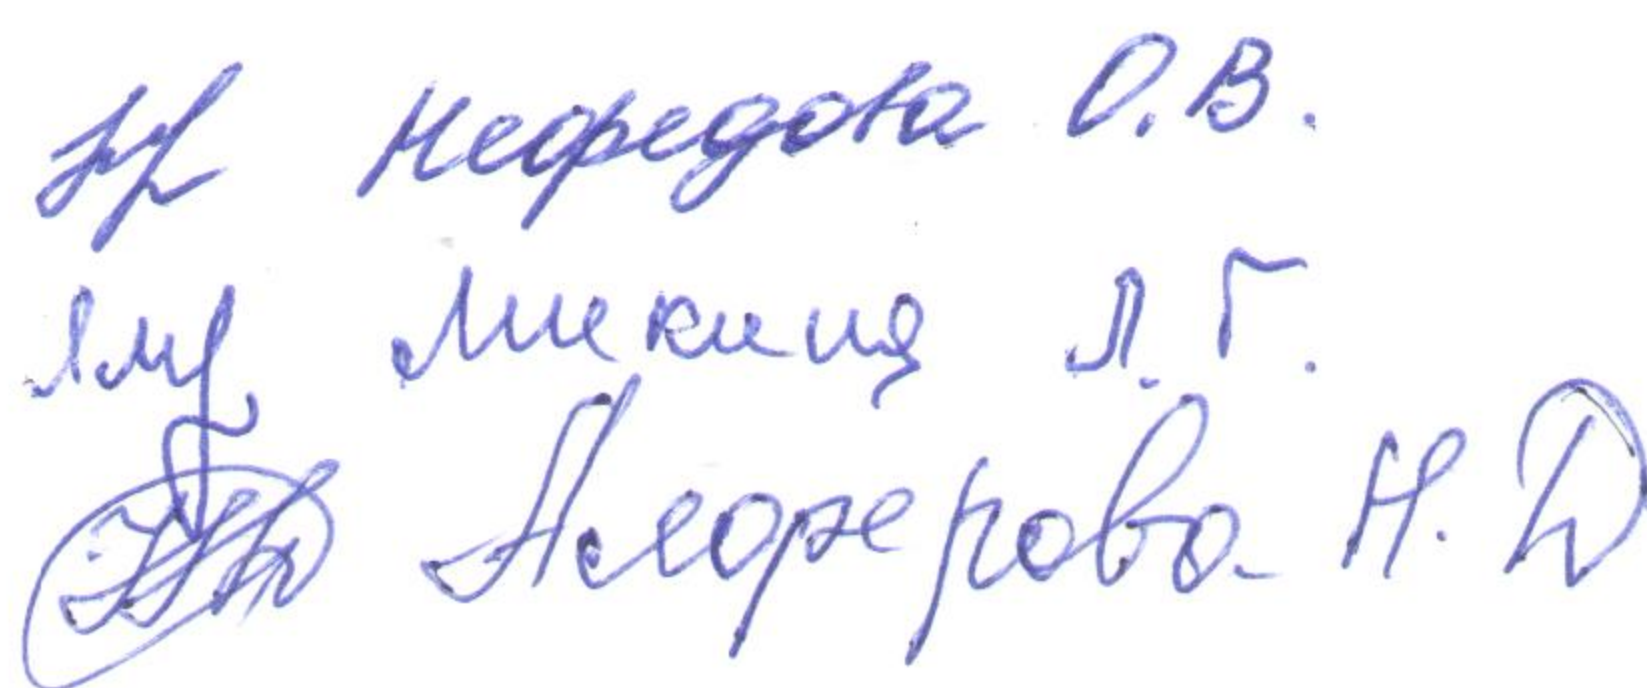 Нефедова О.В.
Микиця Л.Г.
Алферова Н.Д